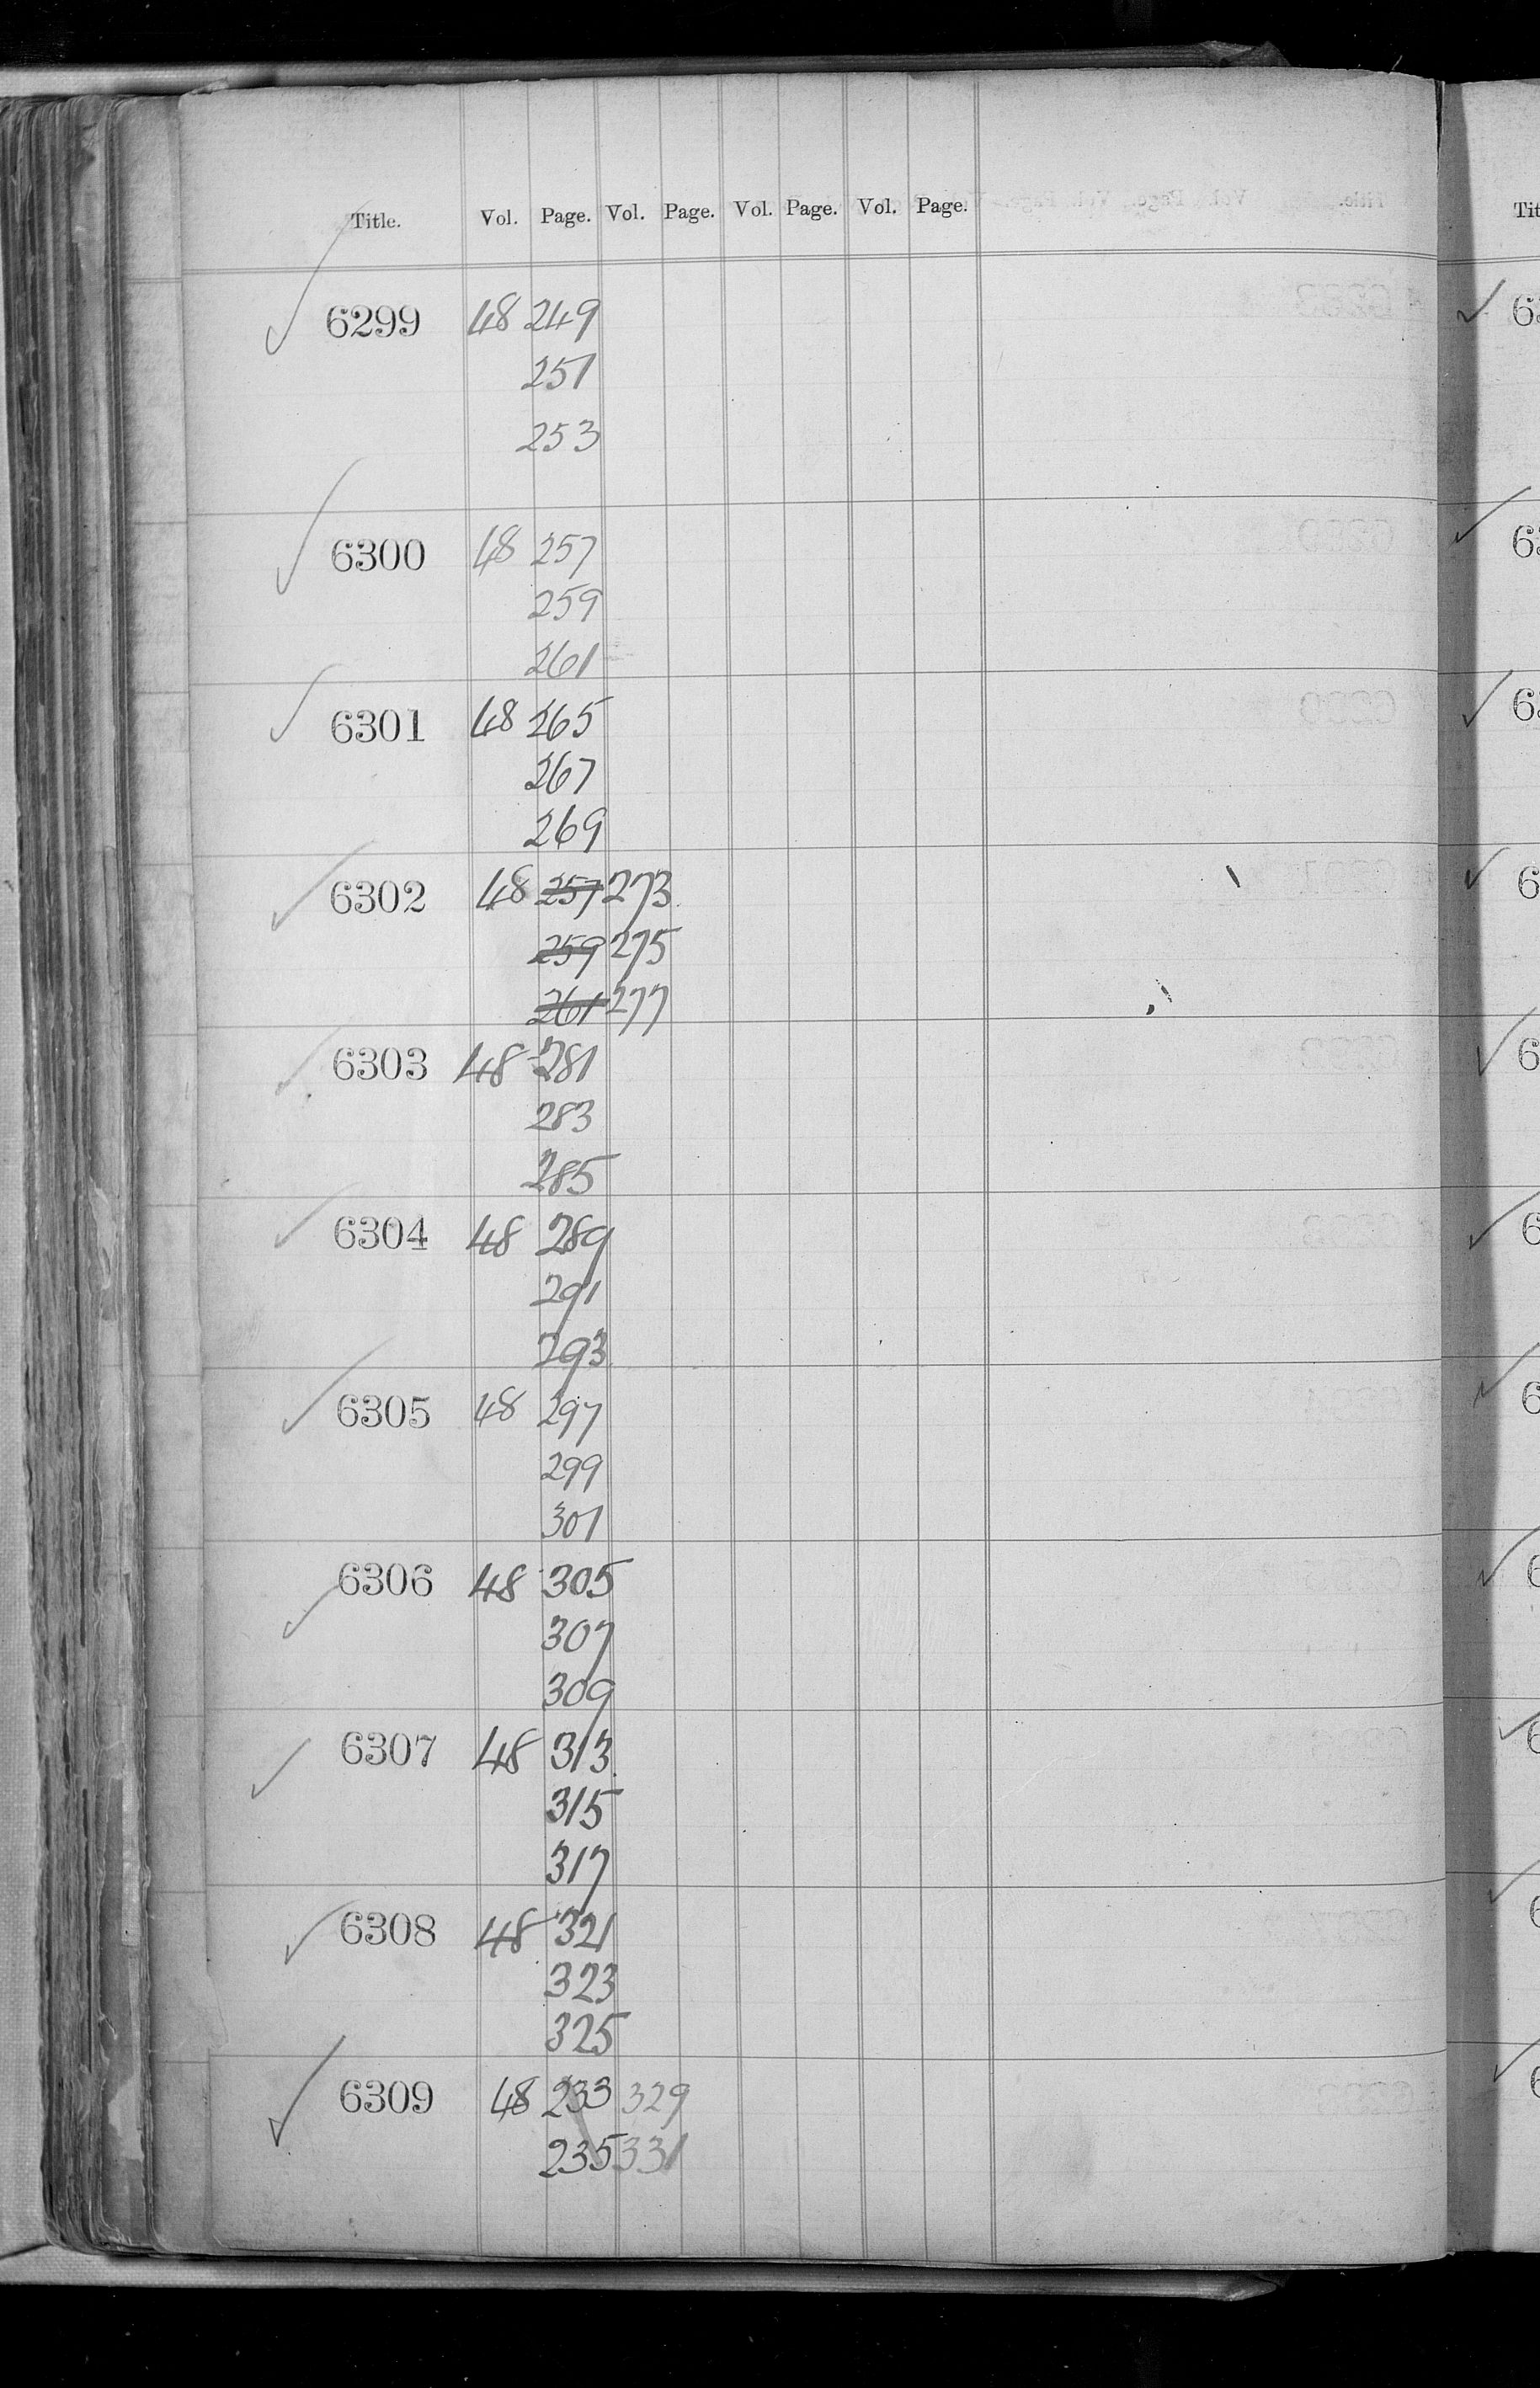 Title. Vol. Page. Vol. Page. Vol. Page. Vol. Page.
6299 48 249
251
253
6300 48 257
259
261
6301 48 265
267
269
6302 48 257 273
259 275
261 277
6303 48 281
283
285
6304 48 289
291
293
6305 48 297
299
301
6306 48 305
307
309
6307 48 313
315
317
6308 48 321
323
325
6309 48 233 329
235 331